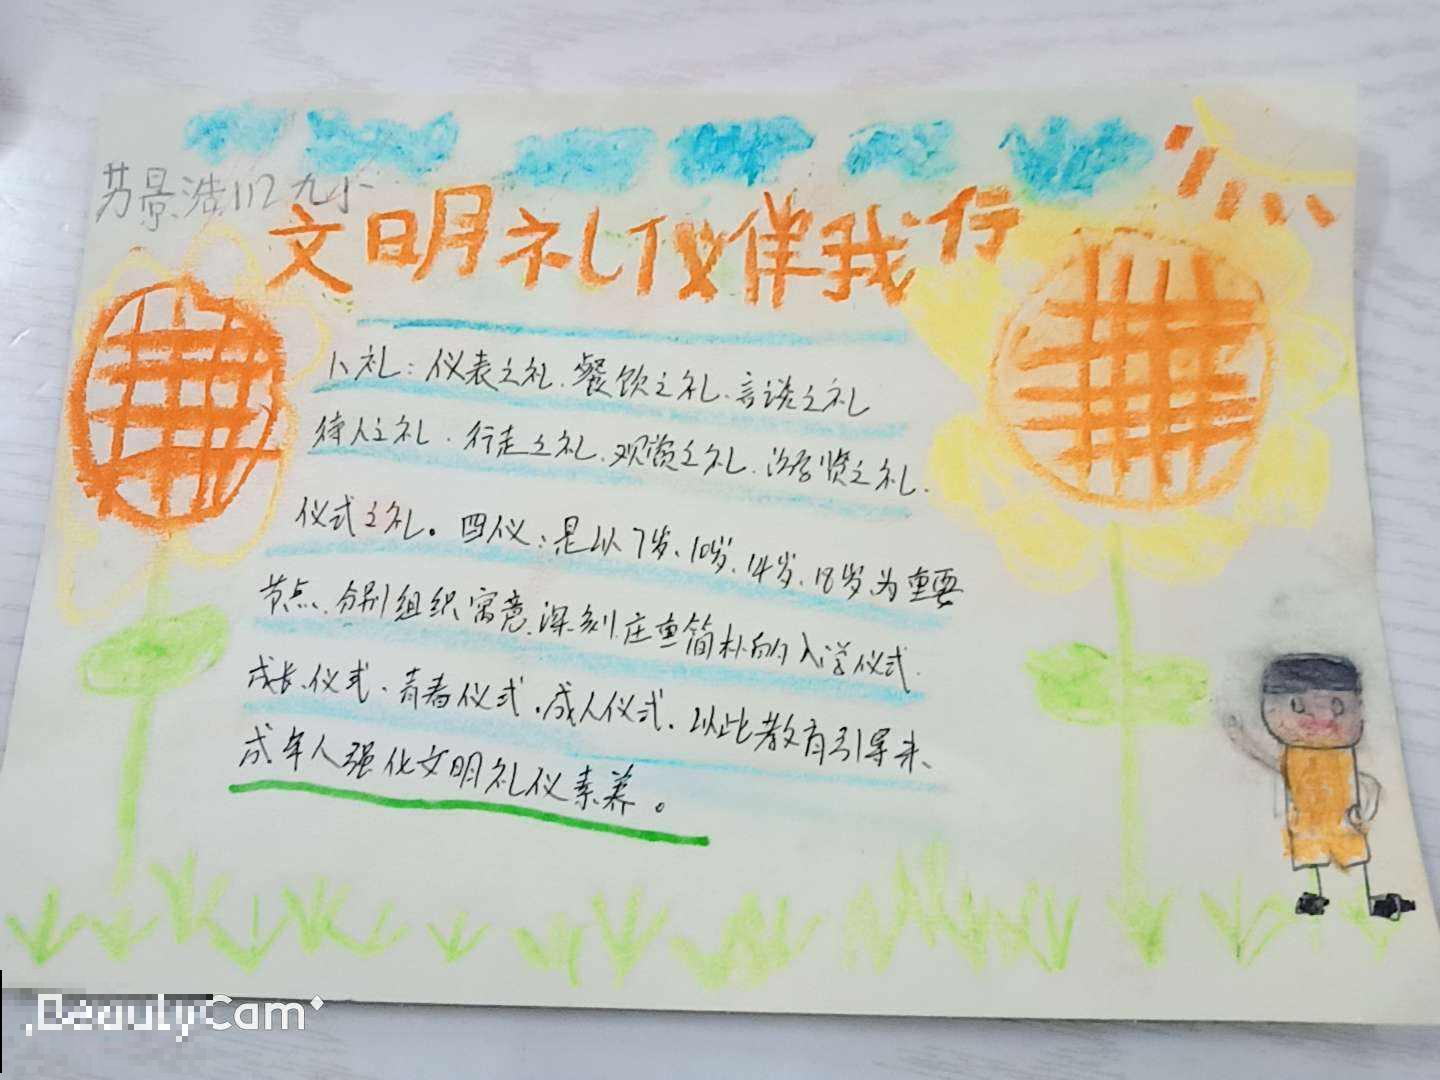 苏景浩112九小
文明礼仪伴我行
八礼：仪表之礼、餐饮之礼、言谈之礼
待人之礼、行走之礼、观赏之礼、游览之礼、
仪式之礼。四仪：是以7岁、10岁、14岁、18岁为重要
节点、分别组织寓意、深刻、庄重简朴的入学仪式、
成长、仪式、青春仪式、成人仪式、以此教育引导未、
成年人强化文明礼仪素养。
BeautyCam